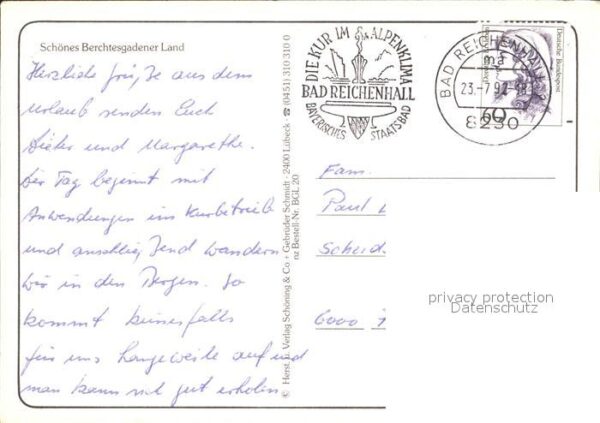 Schönes Berchtesgadener Land
Herzliche Grüße aus dem
Urlaub senden Euch
Dieter und Margarethe.
Der Tag beginnt mit
Anwendungen im Kurbetrieb
und anschließend wandern
wir in den Bergen. So
kommt keinesfalls
für uns Langeweile auf und
man kann sich gut erholen
© Herst. u. Verlag Schöning & Co + Gebrüder Schmidt · 2400 Lübeck · ☎ (0451) 310 310 0
nz Bestell-Nr. BGL 20
DIE KUR IM ALPENKLIMA
BAD REICHENHALL
BAYERISCHES STAATSBAD
BAD REICHENHALL
ma
23.-7.92-18
8230
Deutsche Bundespost
60
Fam.
Paul
Scheid
6000
privacy protection
Datenschutz